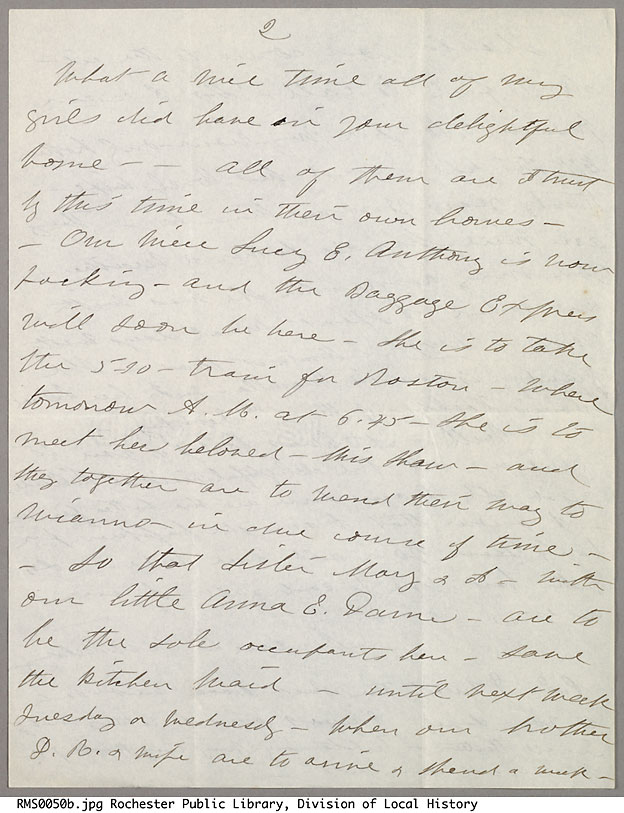 2
What a nice time all of my
girls did have in your delightful
home - - all of them are I trust
by this time in their own homes -
- Our niece Lucy E. Anthony is now
packing - and the Baggage Express
will soon be here - She is to take
the 5-20 - train for Boston - where
tomorrow A. M. at 6.45 - she is to
meet her beloved - this Shaw - and
they together are to wend their way to
Wianno - in due course of time -
- So that Sister Mary & I - with
our little Anna E. Dann - are to
be the sole occupants here - save
the kitchen maid - until next week
Tuesday or Wednesdy - when our brother
D. R. & wife are to arrive & spend a week -
RMS0050b.jpg Rochester Public Library, Division of Local History